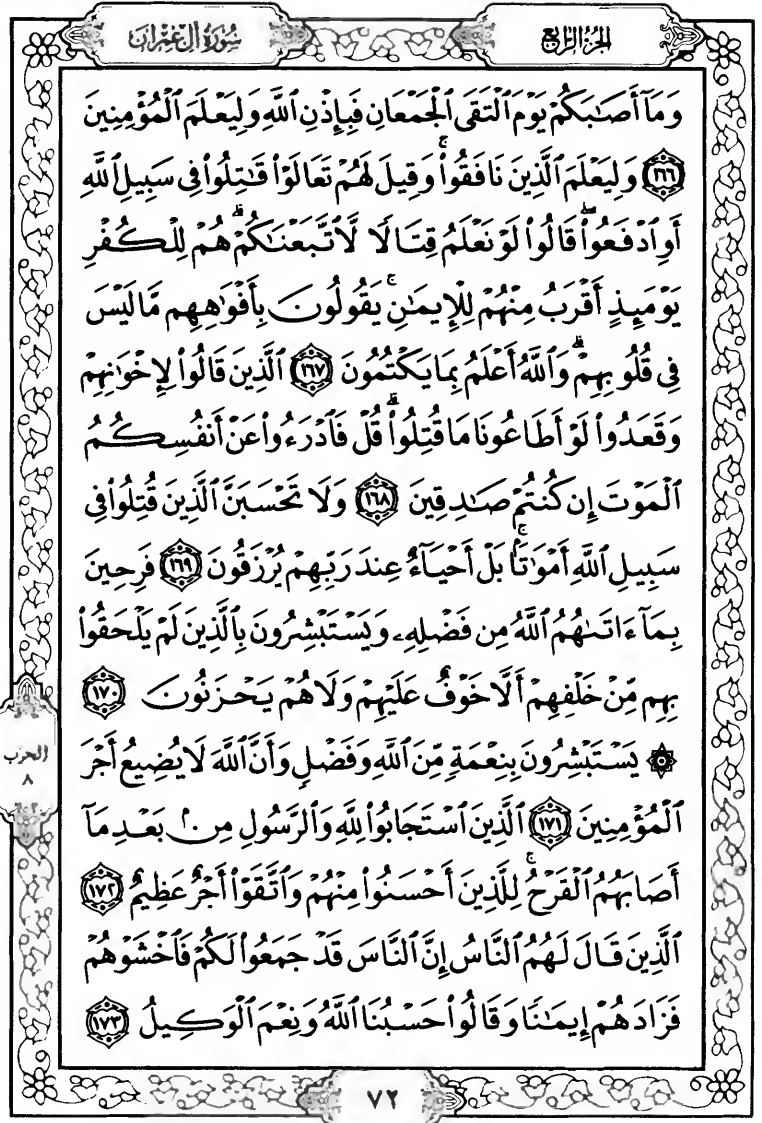 سُورَةُ آلِ عِمْرَان
الجُزءُ الرَّابِعُ
وَمَآ أَصَٰبَكُمْ يَوْمَ ٱلْتَقَى ٱلْجَمْعَانِ فَبِإِذْنِ ٱللَّهِ وَلِيَعْلَمَ ٱلْمُؤْمِنِينَ
١٦٦ وَلِيَعْلَمَ ٱلَّذِينَ نَافَقُوا۟ ۚ وَقِيلَ لَهُمْ تَعَالَوْا۟ قَٰتِلُوا۟ فِى سَبِيلِ ٱللَّهِ
أَوِ ٱدْفَعُوا۟ ۖ قَالُوا۟ لَوْ نَعْلَمُ قِتَالًا لَّٱتَّبَعْنَٰكُمْ ۗ هُمْ لِلْكُفْرِ
يَوْمَئِذٍ أَقْرَبُ مِنْهُمْ لِلْإِيمَٰنِ ۚ يَقُولُونَ بِأَفْوَٰهِهِم مَّا لَيْسَ
فِى قُلُوبِهِمْ ۗ وَٱللَّهُ أَعْلَمُ بِمَا يَكْتُمُونَ ١٦٧ ٱلَّذِينَ قَالُوا۟ لِإِخْوَٰنِهِمْ
وَقَعَدُوا۟ لَوْ أَطَاعُونَا مَا قُتِلُوا۟ ۗ قُلْ فَٱدْرَءُوا۟ عَنْ أَنفُسِكُمُ
ٱلْمَوْتَ إِن كُنتُمْ صَٰدِقِينَ ١٦٨ وَلَا تَحْسَبَنَّ ٱلَّذِينَ قُتِلُوا۟ فِى
سَبِيلِ ٱللَّهِ أَمْوَٰتًۢا ۚ بَلْ أَحْيَآءٌ عِندَ رَبِّهِمْ يُرْزَقُونَ ١٦٩ فَرِحِينَ
بِمَآ ءَاتَىٰهُمُ ٱللَّهُ مِن فَضْلِهِۦ وَيَسْتَبْشِرُونَ بِٱلَّذِينَ لَمْ يَلْحَقُوا۟
بِهِم مِّنْ خَلْفِهِمْ أَلَّا خَوْفٌ عَلَيْهِمْ وَلَا هُمْ يَحْزَنُونَ ١٧٠
۞ يَسْتَبْشِرُونَ بِنِعْمَةٍ مِّنَ ٱللَّهِ وَفَضْلٍ وَأَنَّ ٱللَّهَ لَا يُضِيعُ أَجْرَ
ٱلْمُؤْمِنِينَ ١٧١ ٱلَّذِينَ ٱسْتَجَابُوا۟ لِلَّهِ وَٱلرَّسُولِ مِنۢ بَعْدِ مَآ
أَصَابَهُمُ ٱلْقَرْحُ ۚ لِلَّذِينَ أَحْسَنُوا۟ مِنْهُمْ وَٱتَّقَوْا۟ أَجْرٌ عَظِيمٌ ١٧٢
ٱلَّذِينَ قَالَ لَهُمُ ٱلنَّاسُ إِنَّ ٱلنَّاسَ قَدْ جَمَعُوا۟ لَكُمْ فَٱخْشَوْهُمْ
فَزَادَهُمْ إِيمَٰنًا وَقَالُوا۟ حَسْبُنَا ٱللَّهُ وَنِعْمَ ٱلْوَكِيلُ ١٧٣
الحزب
٨
٧٢